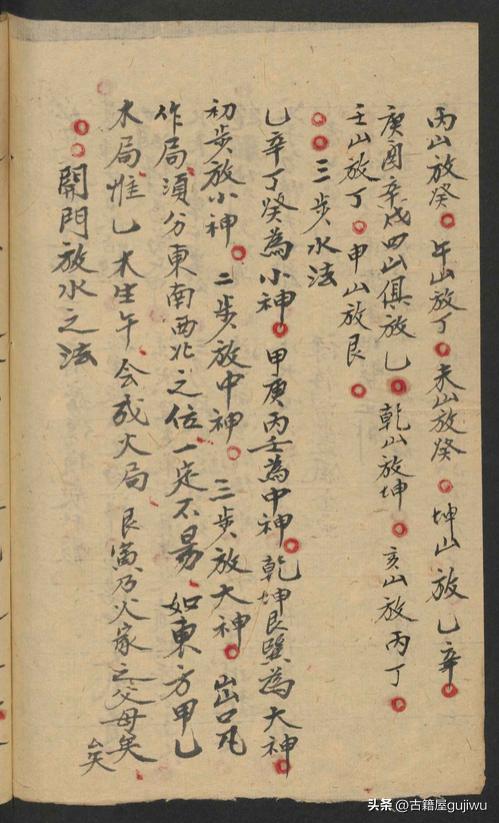 丙山放癸○午山放丁○未山放癸○坤山放乙辛○
庚酉辛戌四山俱放乙○乾山放坤○亥山放丙丁○
壬山放丁○申山放艮○
○○三步水法
乙辛丁癸為小神○甲庚丙壬為中神○乾坤艮巽為大神○
初步放小神○二步放中神○三步放大神○出口凡
作局須分東南西北之位一定不易、如東方甲乙
木局惟乙木生午、会成火局、艮寅乃火家之父母矣
矣
○○開門放水之法
头条@古籍屋gujiwu